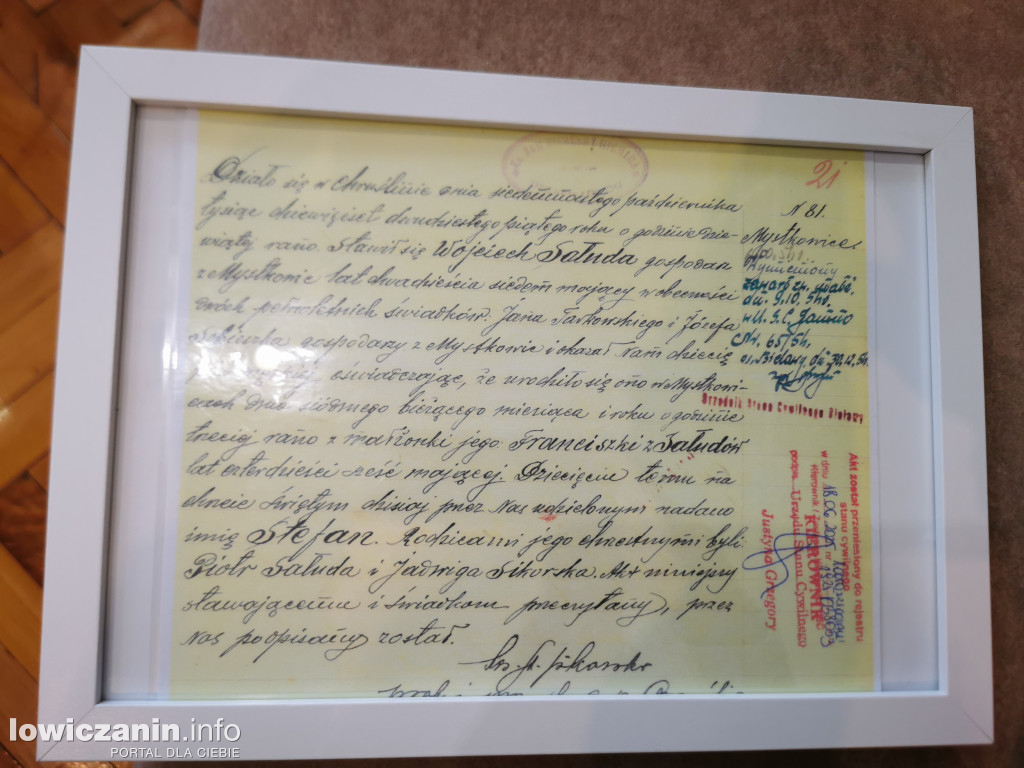 21
Działo się w Chruślinie dnia siedemnastego października
tysiąc dziewięćset dwudziestego piątego roku o godzinie dzie-
wiątej rano. Stawił się Wojciech Saluda gospodarz
z Mystkowic lat dwadzieścia siedem mający w obecności
dwóch pełnoletnich świadków, Jana Tarkowskiego i Józefa
gospodarzy z Mystkowic i okazał nam dziecię
oświadczając, że urodziło się ono w Mystkowi-
cach dnia siódmego bieżącego miesiąca i roku o godzinie
trzeciej rano z małżonki jego Franciszki z Saludów
lat czterdzieści sześć mającej. Dziecięciu temu na
chrzcie świętym dzisiaj przez Nas udzielonym nadano
imię Stefan. Rodzicami jego chrzestnymi byli
Piotr Saluda i Jadwiga Sikorska. Akt niniejszy
stawającemu i świadkom przeczytany, przez
Nas podpisany został.
N 81.
Mystkowice
Wymieniony
zawarł zw. małż.
dn. 9.10.54r.
w U.S.C.
Nr. 65/54.
Bielawy dn. 30.12.54
Urzędnik Stanu Cywilnego Bielawy
Akt został przeniesiony do rejestru
stanu cywilnego
w dniu 18.06.
KIEROWNIK
Urzędu Stanu Cywilnego
Justyna Gregory
lowiczanin.info
PORTAL DLA CIEBIE